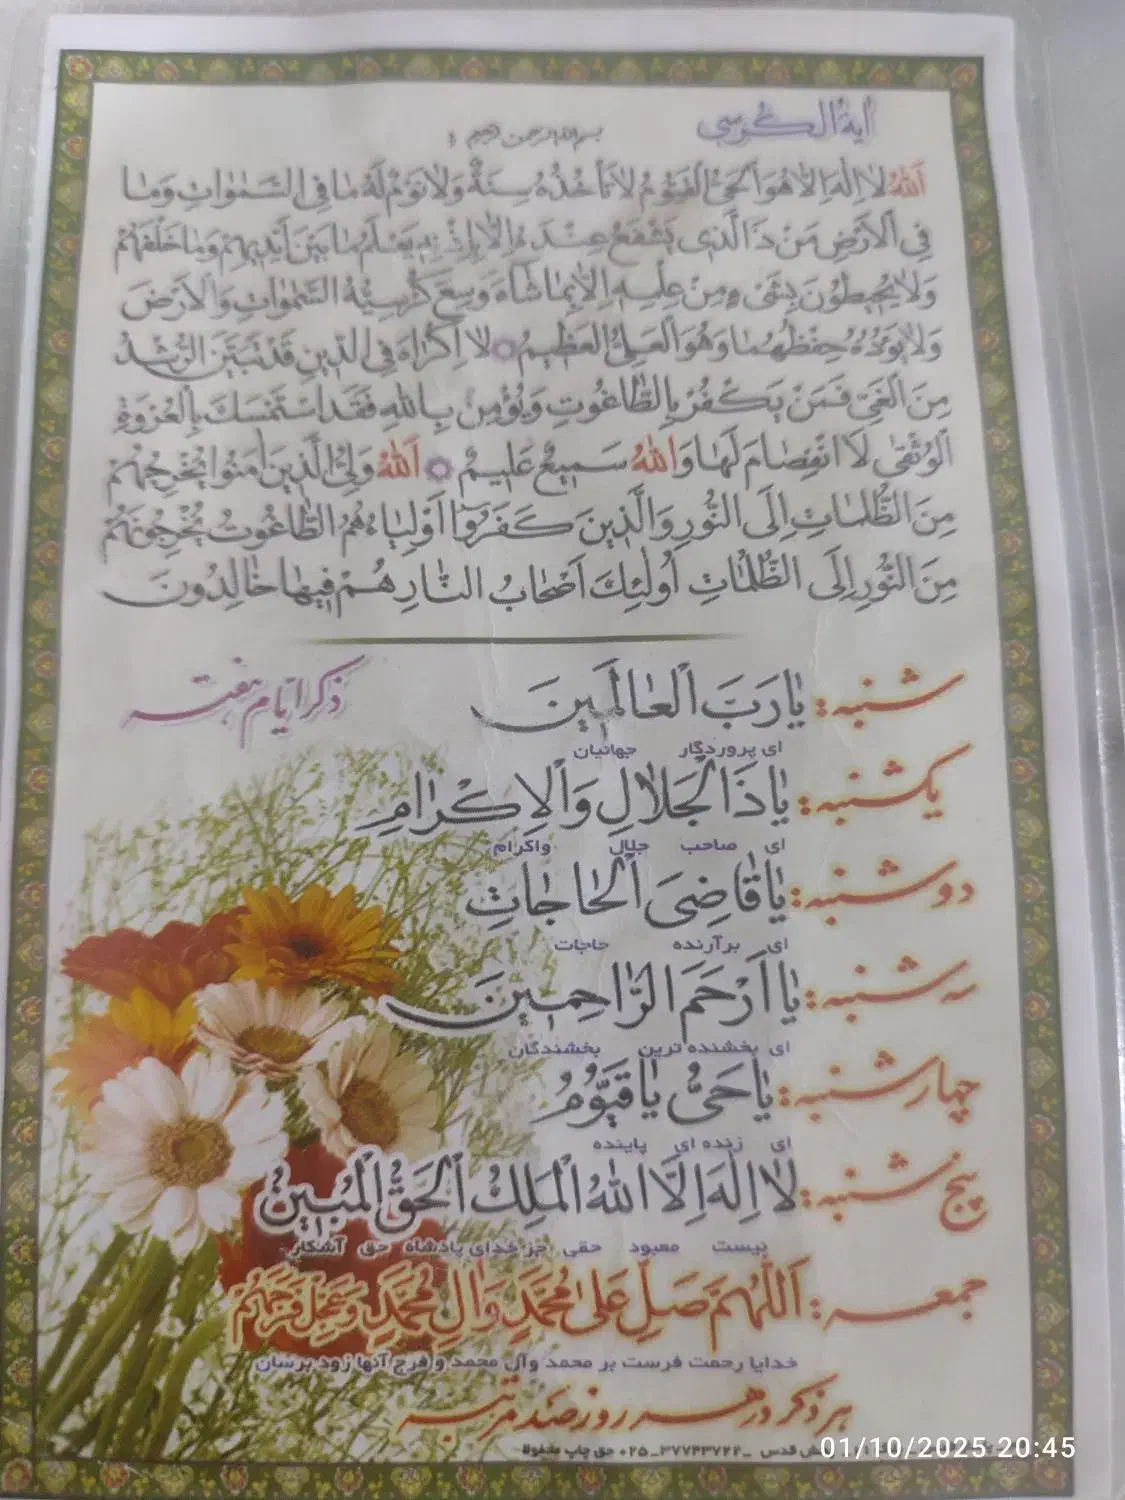 آیةالکرسي
بسم الله الرحمن الرحیم
اَللهُ لا اِلٰهَ اِلّا هُوَ الْحَیُّ الْقَیُّومُ لا تَأْخُذُهُ سِنَةٌ وَلا نَوْمٌ لَهُ ما فِی السَّمٰواتِ وَما
فِی الْاَرْضِ مَنْ ذَا الَّذی یَشْفَعُ عِنْدَهُ اِلّا بِاِذْنِهِ یَعْلَمُ ما بَیْنَ اَیْدیهِمْ وَما خَلْفَهُمْ
وَلا یُحیطُونَ بِشَیْءٍ مِنْ عِلْمِهِ اِلّا بِما شاءَ وَسِعَ کُرْسِیُّهُ السَّمٰواتِ وَالْاَرْضَ
وَلا یَؤُدُهُ حِفْظُهُما وَهُوَ الْعَلِیُّ الْعَظیمُ لا اِکْراهَ فِی الدّینِ قَدْ تَبَیَّنَ الرُّشْدُ
مِنَ الْغَیِّ فَمَنْ یَکْفُرْ بِالطّاغُوتِ وَیُؤْمِنْ بِاللهِ فَقَدِ اسْتَمْسَکَ بِالْعُرْوَةِ
الْوُثْقیٰ لَا انْفِصامَ لَها وَاللهُ سَمیعٌ عَلیمٌ اَللهُ وَلِیُّ الَّذینَ اٰمَنُوا یُخْرِجُهُمْ
مِنَ الظُّلُماتِ اِلَی النُّورِ وَالَّذینَ کَفَرُوا اَوْلِیاءُهُمُ الطّاغُوتُ یُخْرِجُونَهُمْ
مِنَ النُّورِ اِلَی الظُّلُماتِ اُولٰئِکَ اَصْحابُ النّارِ هُمْ فیها خالِدُونَ
ذکر ایام هفته
شنبه: یا رَبَّ الْعالَمینَ
ای پروردگار جهانیان
یکشنبه: یا ذَا الْجَلالِ وَالْاِکْرامِ
ای صاحب جلال واکرام
دوشنبه: یا قاضِیَ الْحاجاتِ
ای برآرنده حاجات
سه شنبه: یا اَرْحَمَ الرّاحِمینَ
ای بخشنده ترین بخشندگان
چهارشنبه: یا حَیُّ یا قَیُّومُ
ای زنده ای پاینده
پنج شنبه: لا اِلٰهَ اِلَّا اللهُ الْمَلِکُ الْحَقُّ الْمُبینُ
نیست معبود حقی جز خدای پادشاه حق آشکار
جمعه: اَللّٰهُمَّ صَلِّ عَلیٰ مُحَمَّدٍ وَآلِ مُحَمَّدٍ وَعَجِّلْ فَرَجَهُمْ
خدایا رحمت فرست بر محمد وآل محمد و فرج آنها زود برسان
هر ذکر در هر روز صد مرتبه
قدس _ ۳۷۷۴۳۷۲۲_۰۲۵ حق چاپ محفوظ
01/10/2025 20:45